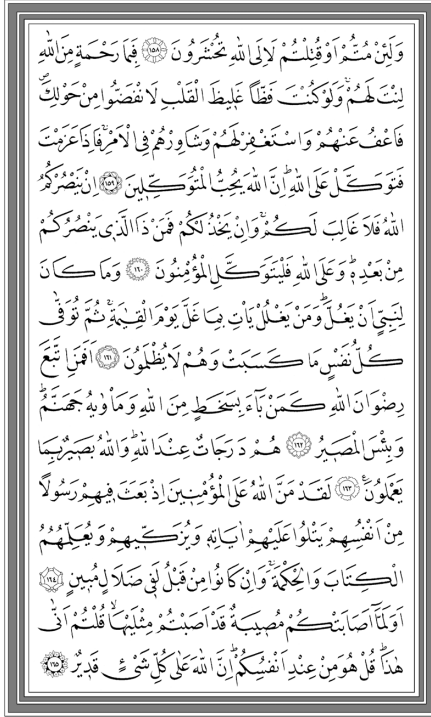 وَلَئِنْ مُتُّمْ اَوْ قُتِلْتُمْ لَاِلَى اللّٰهِ تُحْشَرُونَ ﴿١٥٨﴾ فَبِمَا رَحْمَةٍ مِنَ اللّٰهِ
لِنْتَ لَهُمْۚ وَلَوْ كُنْتَ فَظًّا غَلٖيظَ الْقَلْبِ لَانْفَضُّوا مِنْ حَوْلِكَۖ
فَاعْفُ عَنْهُمْ وَاسْتَغْفِرْ لَهُمْ وَشَاوِرْهُمْ فِي الْاَمْرِۚ فَاِذَا عَزَمْتَ
فَتَوَكَّلْ عَلَى اللّٰهِؕ اِنَّ اللّٰهَ يُحِبُّ الْمُتَوَكِّلٖينَ ﴿١٥٩﴾ اِنْ يَنْصُرْكُمُ
اللّٰهُ فَلَا غَالِبَ لَكُمْۚ وَاِنْ يَخْذُلْكُمْ فَمَنْ ذَا الَّذٖي يَنْصُرُكُمْ
مِنْ بَعْدِهٖؕ وَعَلَى اللّٰهِ فَلْيَتَوَكَّلِ الْمُؤْمِنُونَ ﴿١٦٠﴾ وَمَا كَانَ
لِنَبِيٍّ اَنْ يَغُلَّؕ وَمَنْ يَغْلُلْ يَأْتِ بِمَا غَلَّ يَوْمَ الْقِيٰمَةِۚ ثُمَّ تُوَفّٰى
كُلُّ نَفْسٍ مَا كَسَبَتْ وَهُمْ لَا يُظْلَمُونَ ﴿١٦١﴾ اَفَمَنِ اتَّبَعَ
رِضْوَانَ اللّٰهِ كَمَنْ بَٓاءَ بِسَخَطٍ مِنَ اللّٰهِ وَمَأْوٰيهُ جَهَنَّمُؕ
وَبِئْسَ الْمَصٖيرُ ﴿١٦٢﴾ هُمْ دَرَجَاتٌ عِنْدَ اللّٰهِؕ وَاللّٰهُ بَصٖيرٌ بِمَا
يَعْمَلُونَ ﴿١٦٣﴾ لَقَدْ مَنَّ اللّٰهُ عَلَى الْمُؤْمِنٖينَ اِذْ بَعَثَ فٖيهِمْ رَسُولًا
مِنْ اَنْفُسِهِمْ يَتْلُوا عَلَيْهِمْ اٰيَاتِهٖ وَيُزَكّٖيهِمْ وَيُعَلِّمُهُمُ
الْكِتَابَ وَالْحِكْمَةَۚ وَاِنْ كَانُوا مِنْ قَبْلُ لَفٖي ضَلَالٍ مُبٖينٍ ﴿١٦٤﴾
اَوَلَمَّٓا اَصَابَتْكُمْ مُصٖيبَةٌ قَدْ اَصَبْتُمْ مِثْلَيْهَاۙ قُلْتُمْ اَنّٰى
هٰذَاؕ قُلْ هُوَ مِنْ عِنْدِ اَنْفُسِكُمْؕ اِنَّ اللّٰهَ عَلٰى كُلِّ شَيْءٍ قَدٖيرٌ ﴿١٦٥﴾